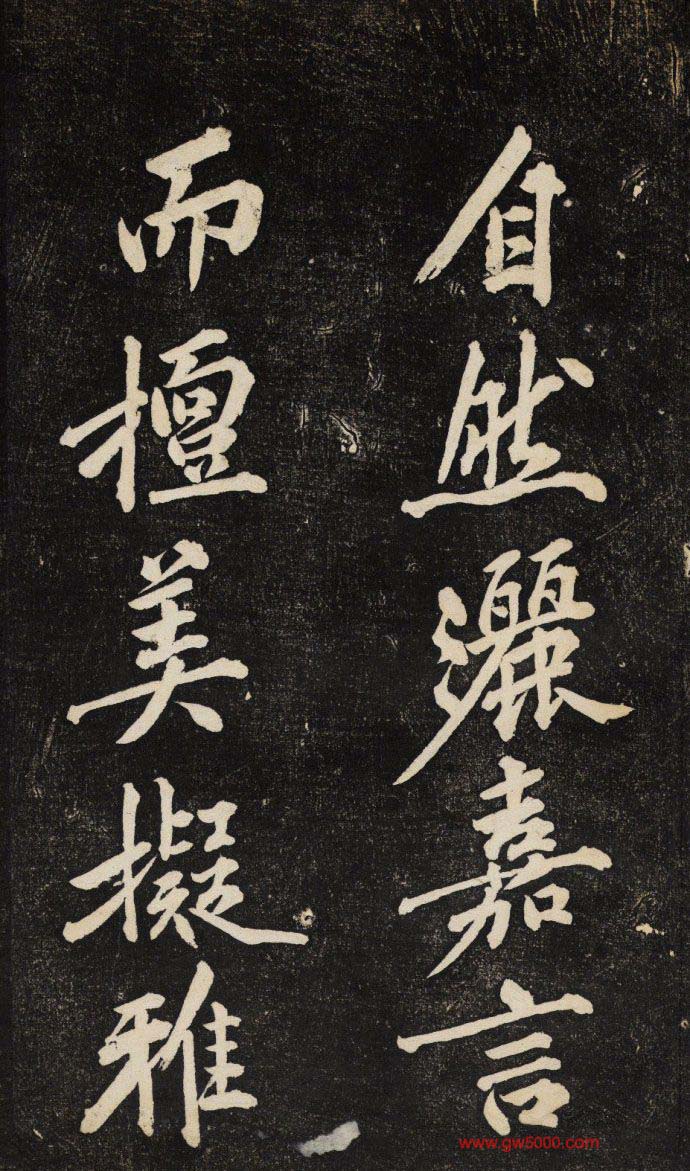 自然灑嘉言
而擅美擬雅
www.gw5000.com